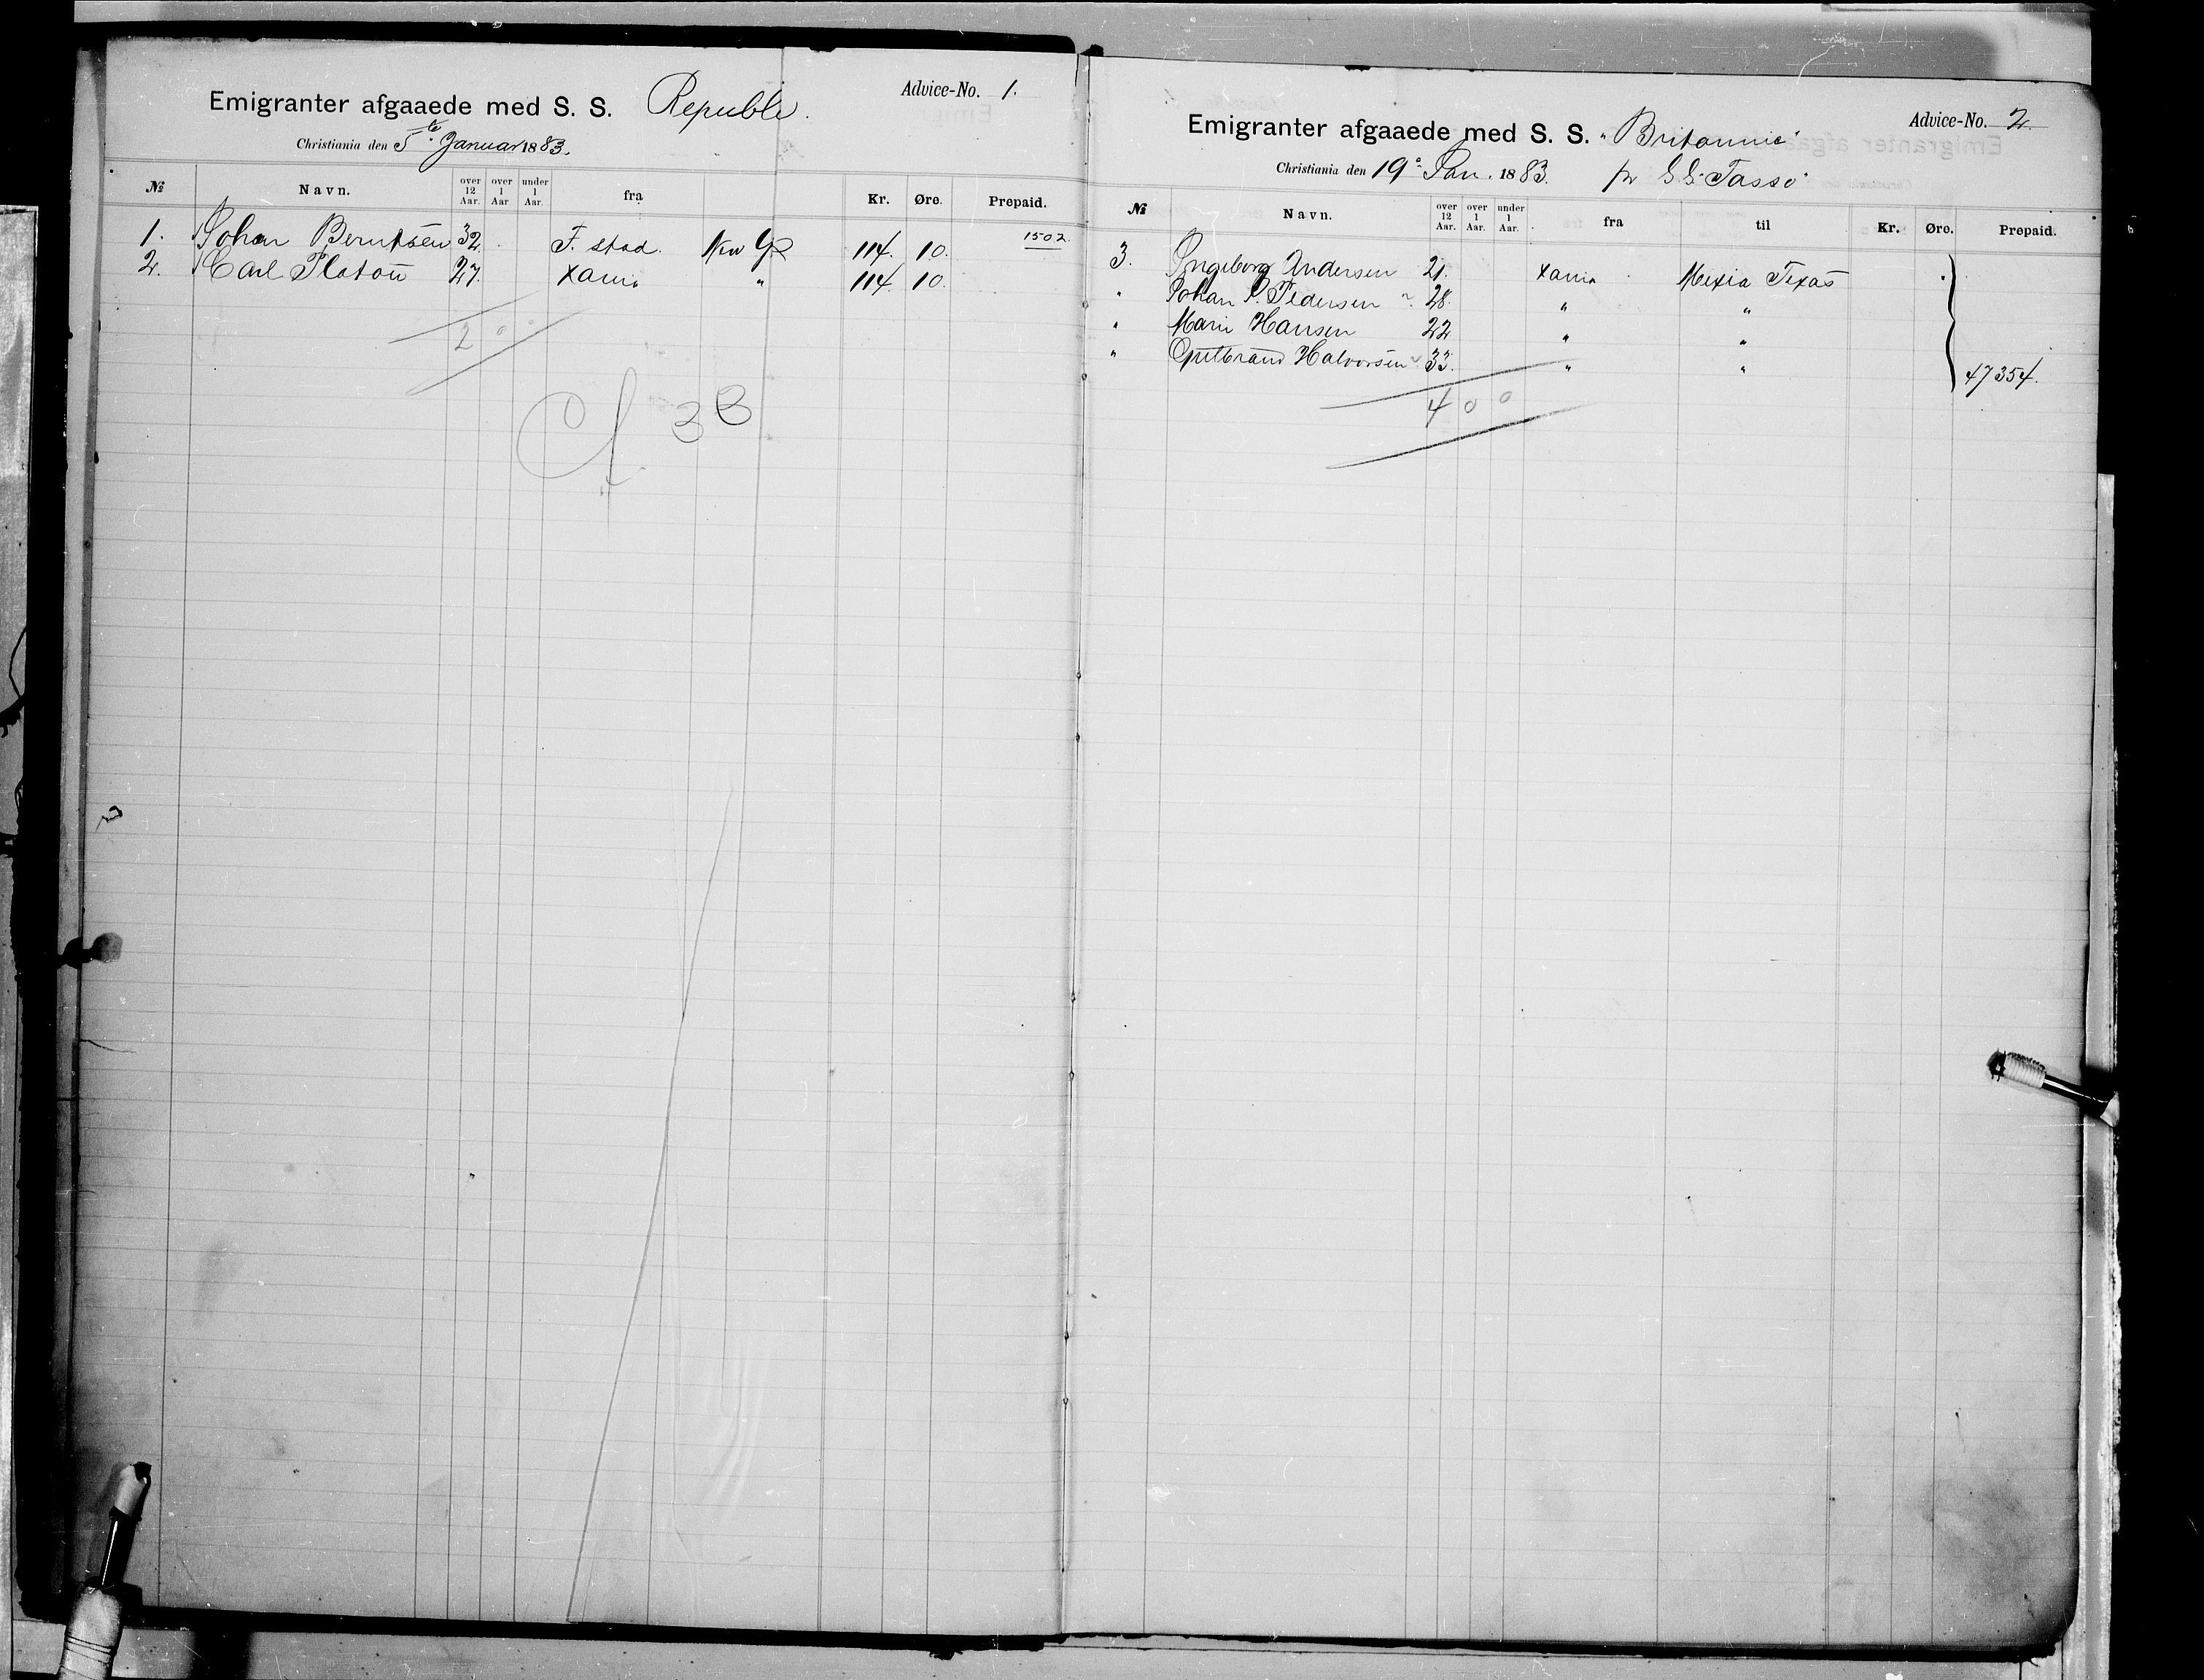 Advice-No. 1.
Emigranter afgaaede med S. S. Republi.
Christiania den 5te Januar 1883.
№ Navn. over 12 Aar. over 1 Aar under 1 Aar. fra Kr. Øre. Prepaid.
1. Johan Berntsen 32. F. stad. New York 114. 10. 1502.
2. Carl Platou 27. Xania " 114. 10.
2 0 0
Advice-No. 2.
Emigranter afgaaede med S. S. "Britannic"
Christiania den 19de Jan. 1883. pr S.S. Tasso
№ Navn. over 12 Aar. over 1 Aar. under 1 Aar. fra til Kr. Øre. Prepaid.
3. Ingeborg Andersen 21. Xania Mexia Texas
" Johan P. Pedersen 28. " "
" Marie Hansen 22 " "
" Gulbrand Halvorsen 33. " " 47354.
4 0 0